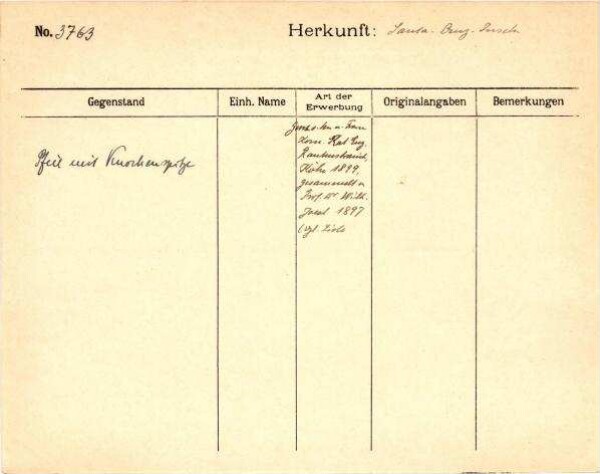 No. 3763
Herkunft: Santa-Cruz-Inseln
Gegenstand
Einh. Name
Art der Erwerbung
Originalangaben
Bemerkungen
Pfeil mit Knochenspitze
Gesch. v. Herrn u. Frau
Kom. Rat Eug.
Rautenstrauch,
Köln 1899,
gesammelt v.
Prof. Dr. Wilh.
Joest 1897
(vgl. Liste